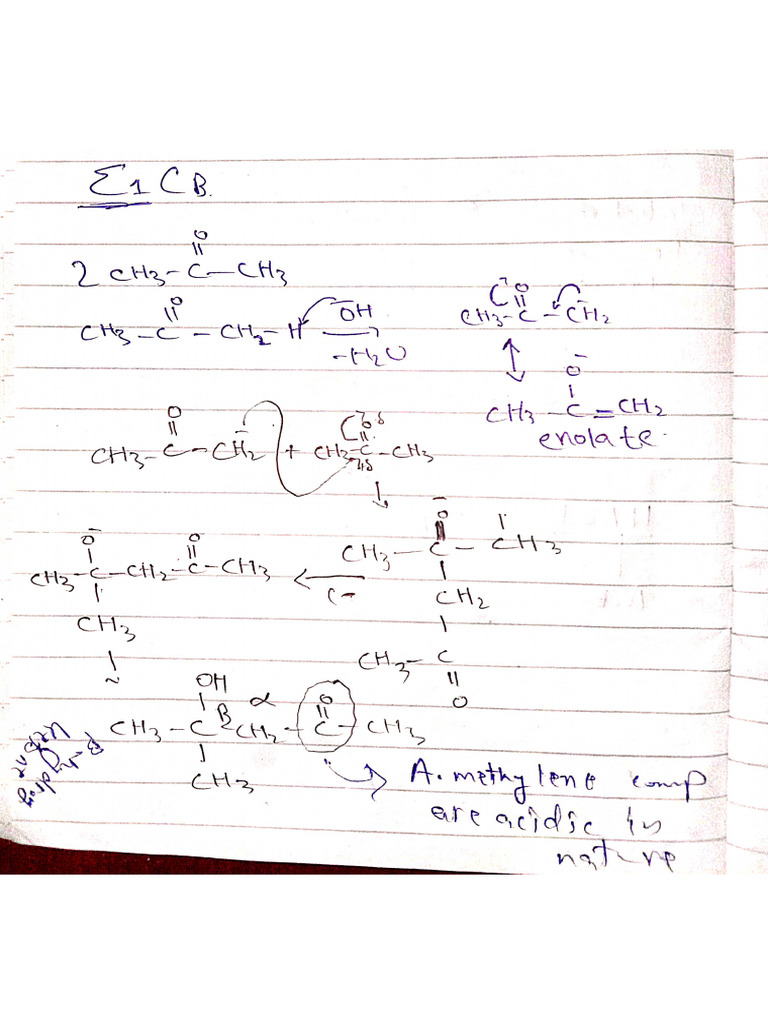 E1CB.
O
2 CH3-C-CH3
O
CH3-C-CH2-H OH
-H2O
O
CH3-C-CH2
O
CH3-C=CH2
enolate.
O
CH3-C-CH2 + CH3-C-CH3
O
CH3-C-CH3
CH2
CH3-C
O
O O
CH3-C-CH2-C-CH3
CH3
OH O
B α
CH3-C-CH2-C-CH3
CH3
A. methylene comp
are acidic in
nature